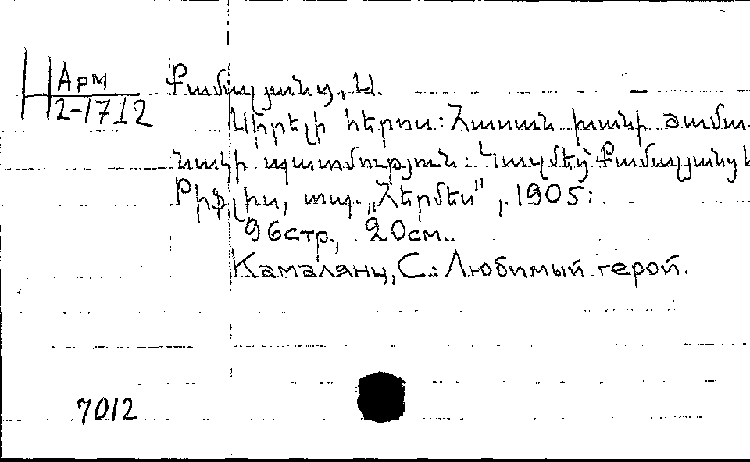 Арм
2-1712
Քամալյանց, Ս.
Սիրելի հերոս: Հասան խանի ժամա-
նակի պատմություն: Կազմեց Քամալյանց
Թիֆլիս, տպ. „Հերմես", 1905:
96стр., 20см.
Камалянц, С.: Любимый герой.
7012